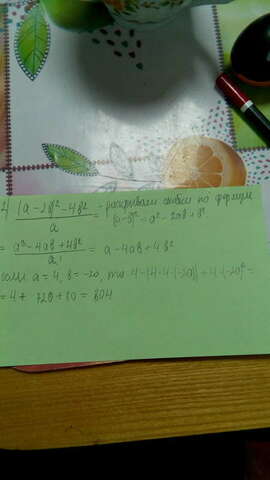 (a-2b)²-4b² / a = - раскрываем скобки по формуле
(a-b)² = a² - 2ab + b²
= a²-4ab+4b² / a = a-4ab+4b²
если a = 4, b = -20, то 4-(4·4·(-20)) + 4·(-20)² =
= 4 +